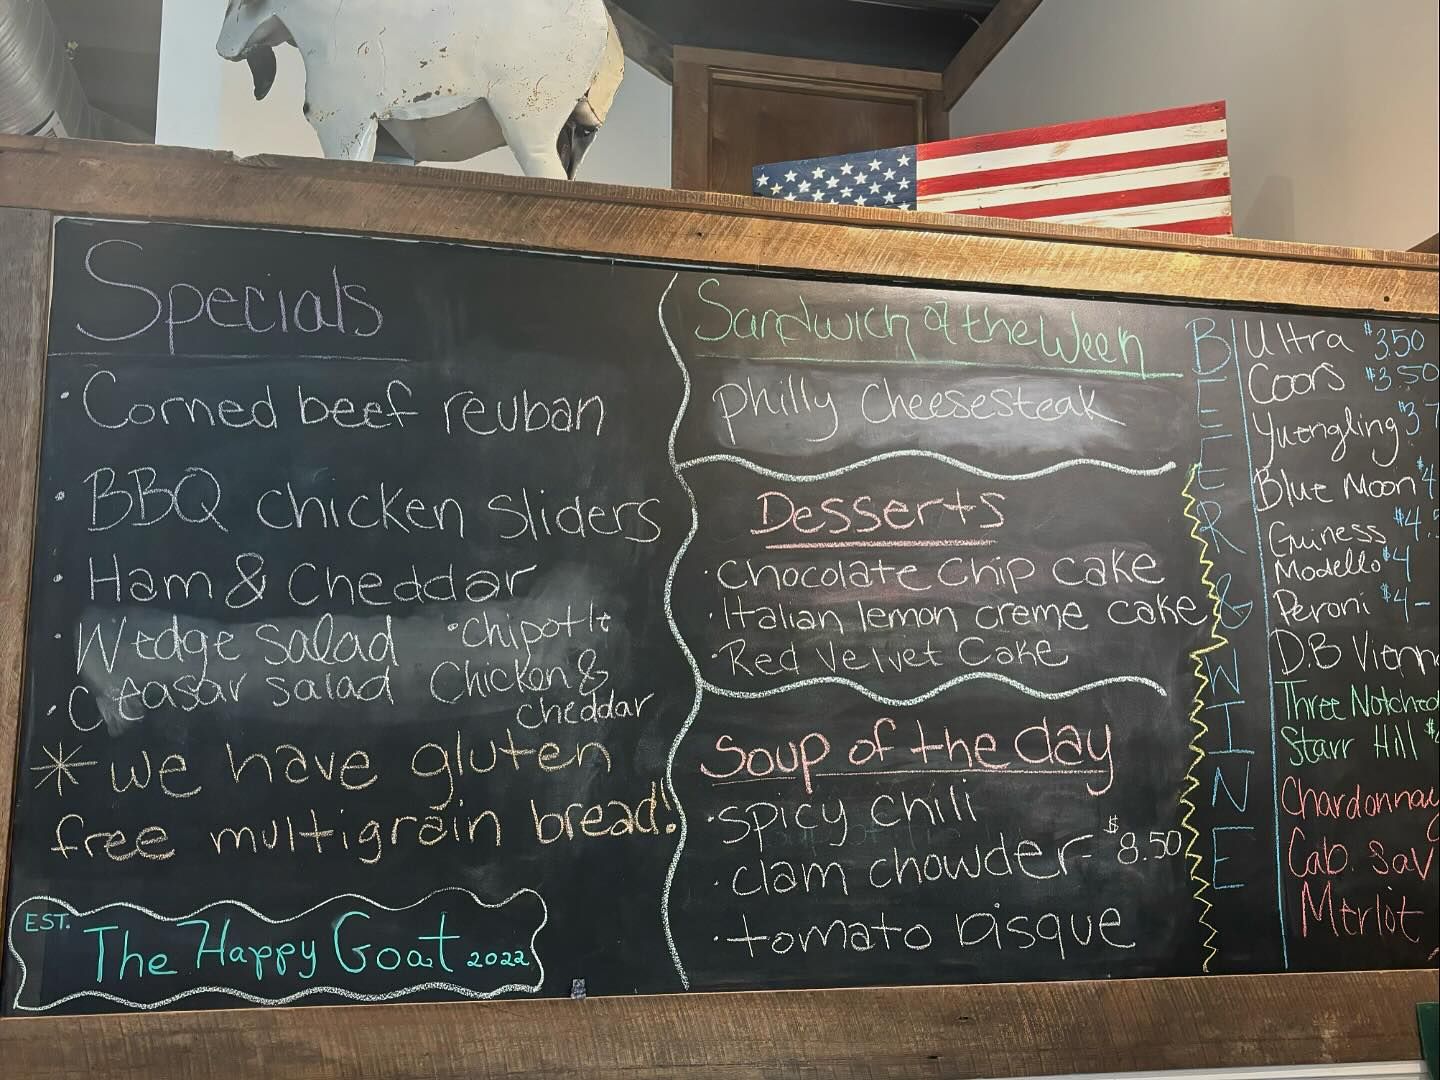 Specials
· Corned beef reuban
· BBQ chicken sliders
· Ham & Cheddar
· Wedge salad
· Ceasar salad
· Chipotle
Chicken &
Cheddar
* we have gluten
free multigrain bread!
EST. The Happy Goat 2022
Sandwich of the Week
Philly Cheesesteak
Desserts
· Chocolate chip cake
· Italian lemon creme cake
· Red Velvet Cake
Soup of the day
· spicy chili
· clam chowder - $8.50
· tomato bisque
BEER & WINE
Ultra $3.50
Coors $3.50
Yuengling $3
Blue Moon $4
Guiness $4.
Modello $4
Peroni $4-
D.B Vienn
Three Notched
Starr Hill $
Chardonnay
Cab. Sav
Merlot